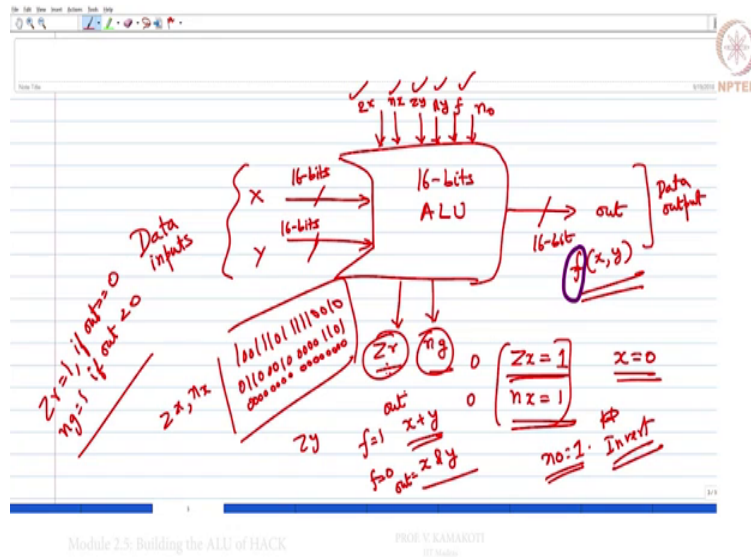 File Edit View Insert Actions Tools Help
Note Title
9/19/2019
NPTEL
zx nx zy ny f no
X 16-bits
Y 16-bits
16-bits
ALU
16-bit
out
f(x,y)
Data output
Data inputs
Zr=1, if out=0
ng=1 if out<0
zx, nx
1001110111110010
0110001000001101
0000000000000000
Zr ng
0 zx=1 x=0
0 nx=1
zy
out
f=1 x+y
f=0 out=x&y
no=1. Invert
Module 2.5: Building the ALU of HACK
PROF. V. KAMAKOTI
IIT Madras